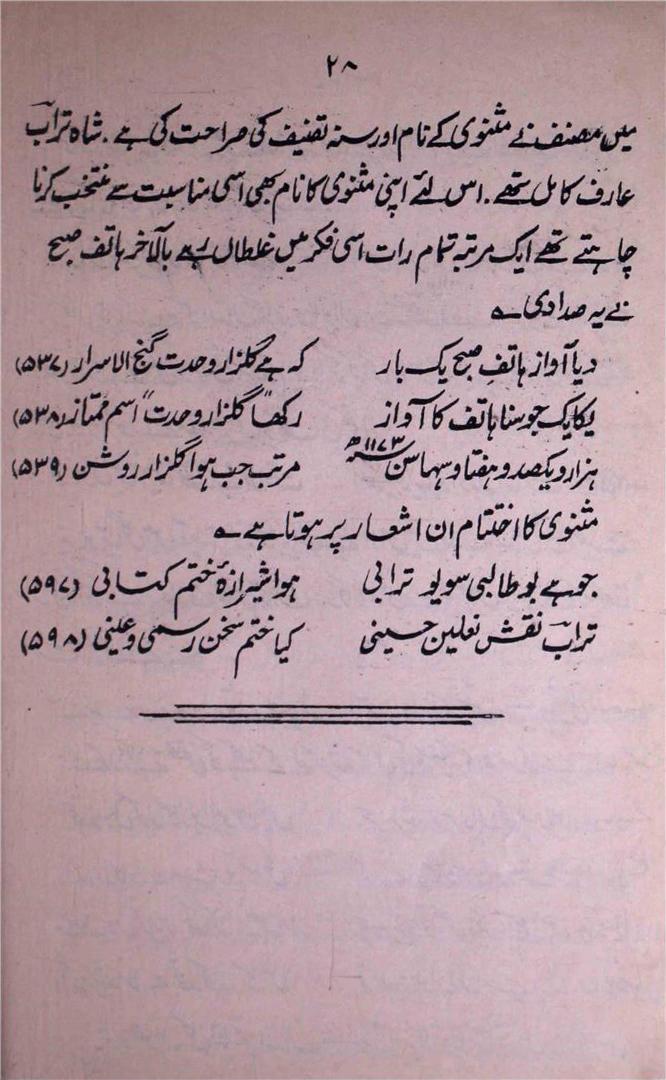 ۲۸
میں مصنف نے مثنوی کے نام اور سنہ تصنیف کی صراحت کی ہے۔ شاہ ترابؔ
عارف کامل تھے۔ اس لئے اپنی مثنوی کا نام بھی اسی مناسبت سے منتخب کرنا
چاہتے تھے ایک مرتبہ تمام رات اسی فکر میں غلطاں رہے بالآخر ہاتف صبح
نے یہ صدا دی ؎
دیا آواز ہاتفِ صبح یک بار کہ ہے گلزار وحدت گنج الاسرار (۵۳۷)
یکایک جو سنا ہاتف کا آواز رکھا "گلزار وحدت" اسم ممتاز (۵۳۸)
ہزار و یکصد و ہفتاد و سہا سن ۱۱۷۳ھ مرتب جب ہوا گلزار روشن (۵۳۹)
مثنوی کا اختتام ان اشعار پر ہوتا ہے ؎
جو ہے بو طالبی سو یو ترابی ہوا شیرازۂ ختم کتابی (۵۹۷)
ترابؔ نقش نعلین حسینی کیا ختم سخن رسمی و عینی (۵۹۸)